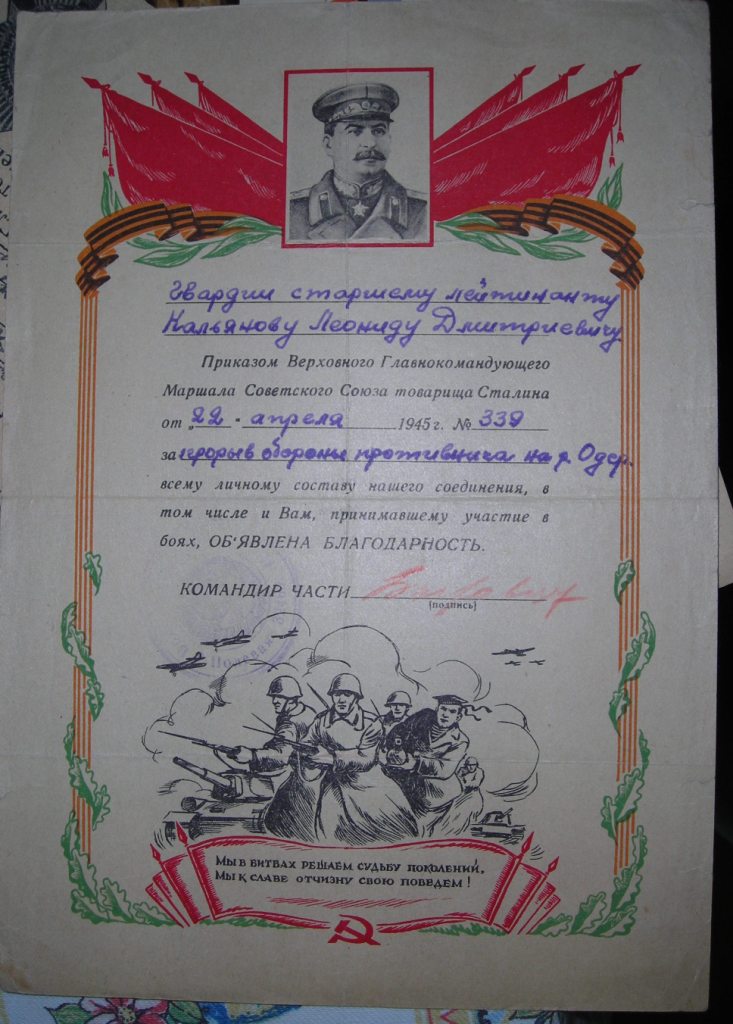 Гвардии старшему лейтинанту
Кальянову Леониду Дмитриевичу
Приказом Верховного Главнокомандующего
Маршала Советского Союза товарища Сталина
от „22 " апреля 1945 г. № 339
за прорыв обороны противнича на р. Одер.
всему личному составу нашего соединения, в
том числе и Вам, принимавшему участие в
боях, ОБ'ЯВЛЕНА БЛАГОДАРНОСТЬ.
КОМАНДИР ЧАСТИ
(подпись)
Полевая
Мы в битвах решаем судьбу поколений,
Мы к славе отчизну свою поведем!